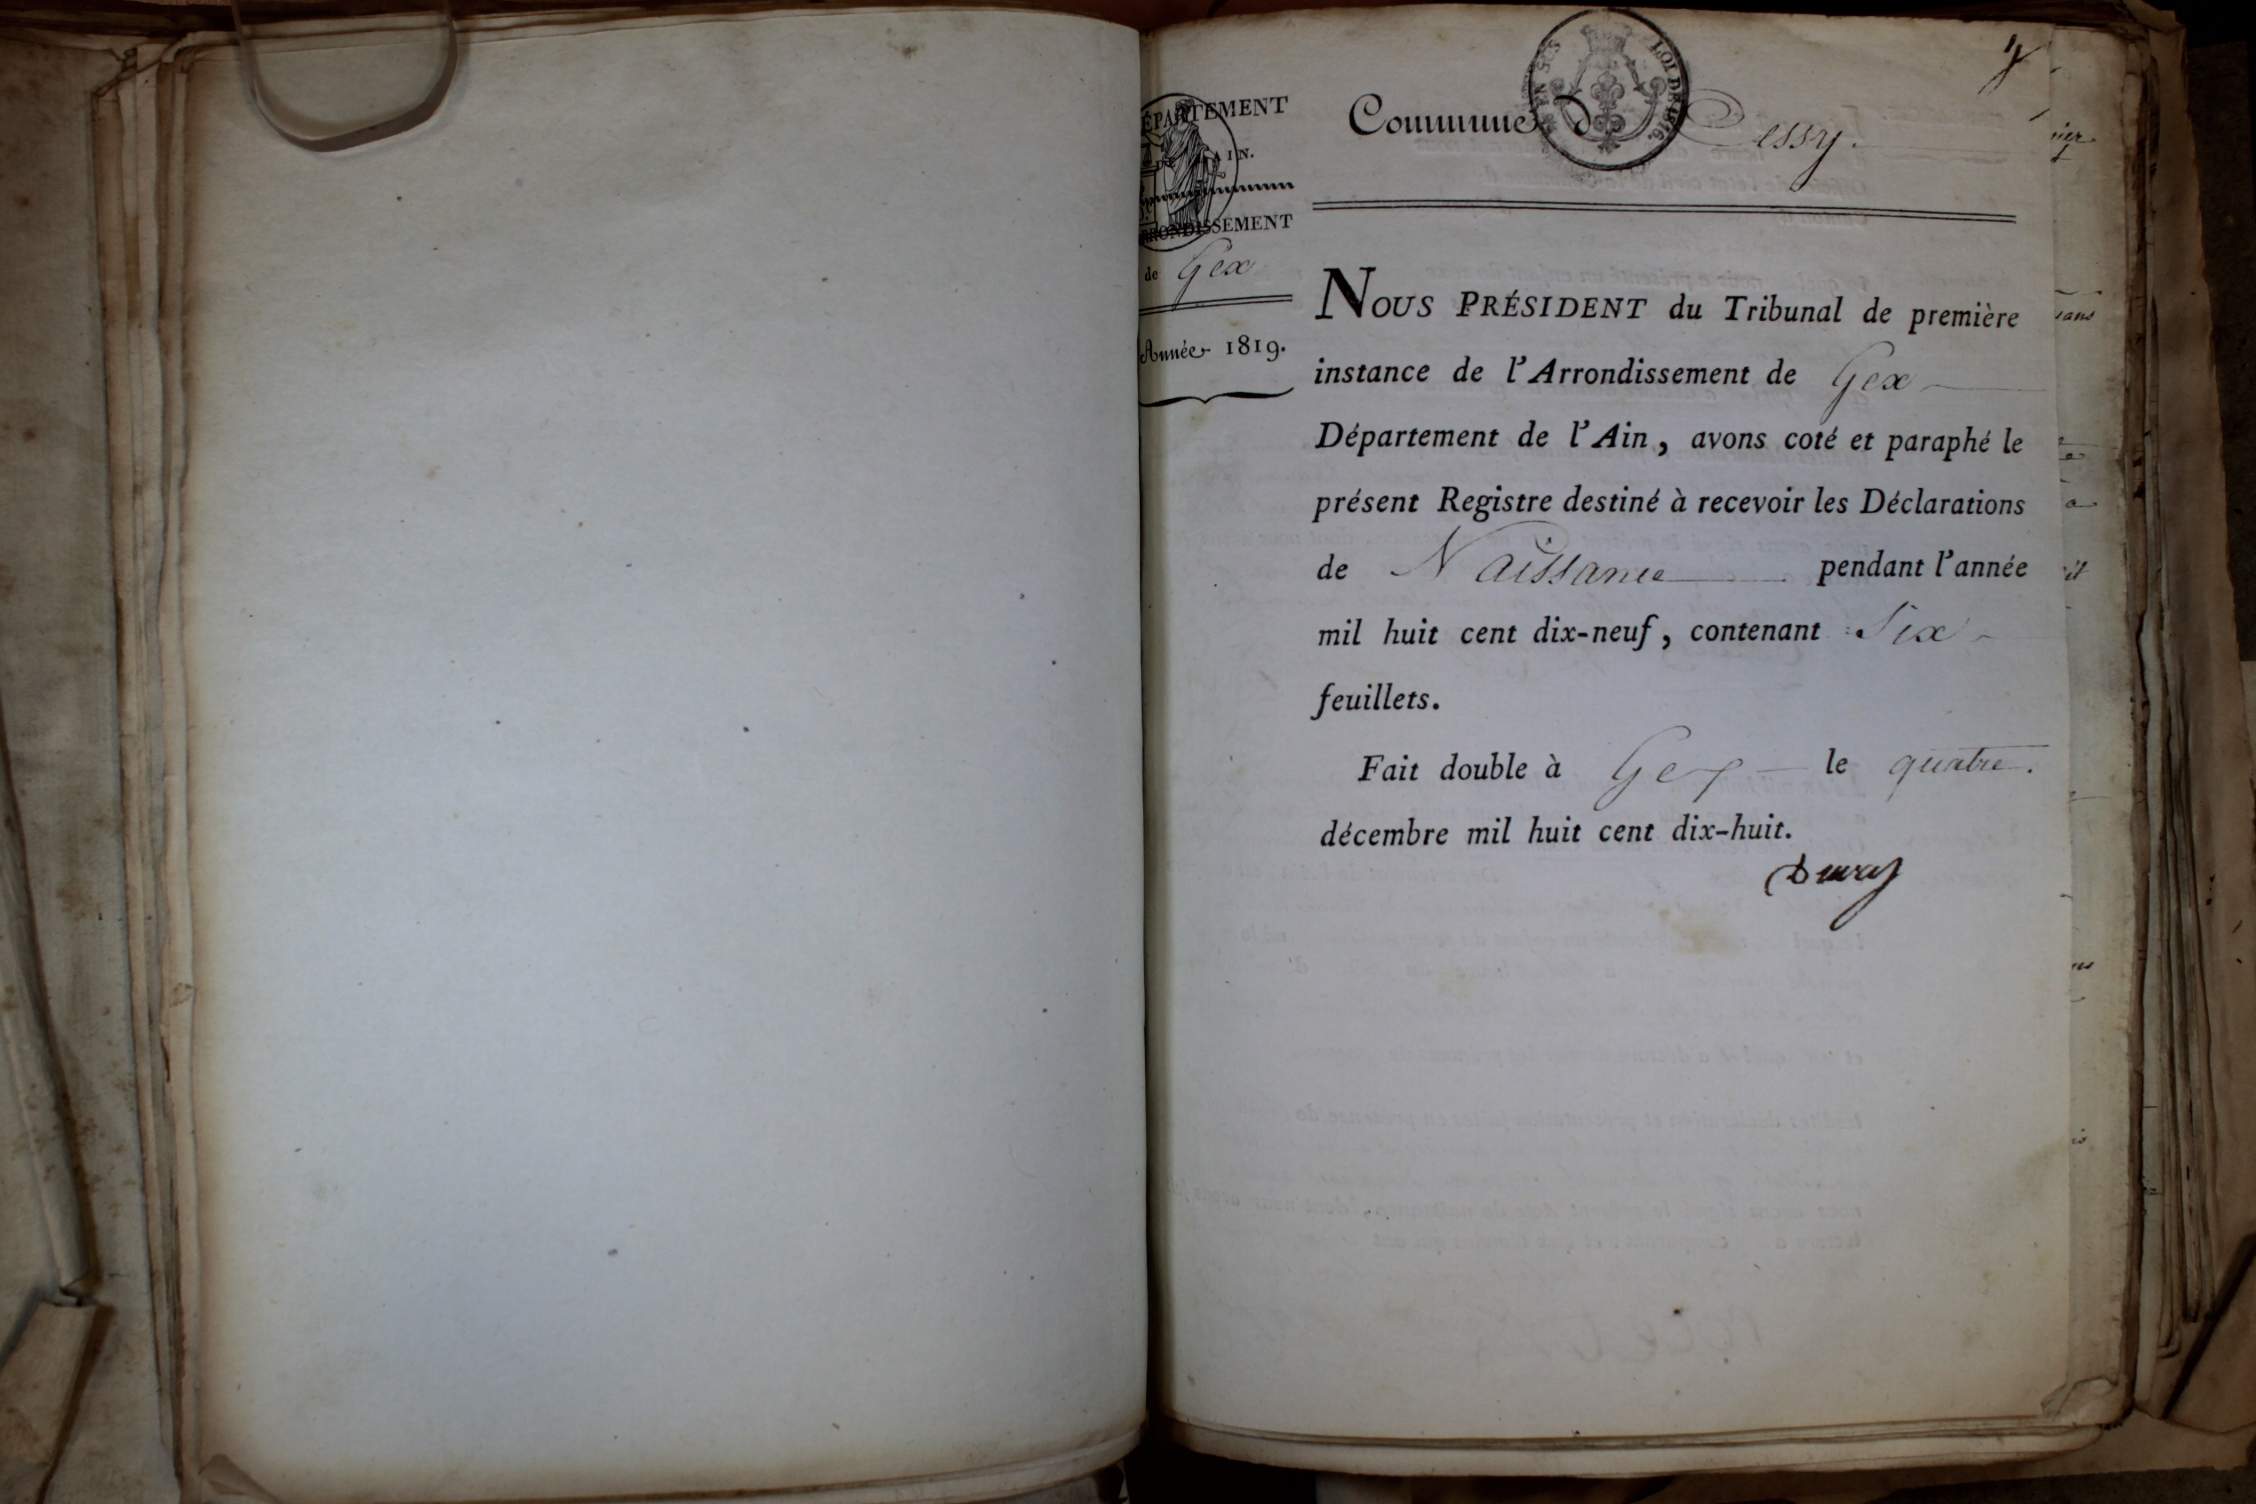 DÉPARTEMENT
DE L'AIN.
ARRONDISSEMENT
de Gex
Année 1819.
EN SUS
LOI DE 1816.
Commune de Cessy.
NOUS PRÉSIDENT du Tribunal de première
instance de l'Arrondissement de Gex
Département de l'Ain, avons coté et paraphé le
présent Registre destiné à recevoir les Déclarations
de Naissance pendant l'année
mil huit cent dix-neuf, contenant Six
feuillets.
Fait double à Gex le quatre.
décembre mil huit cent dix-huit.